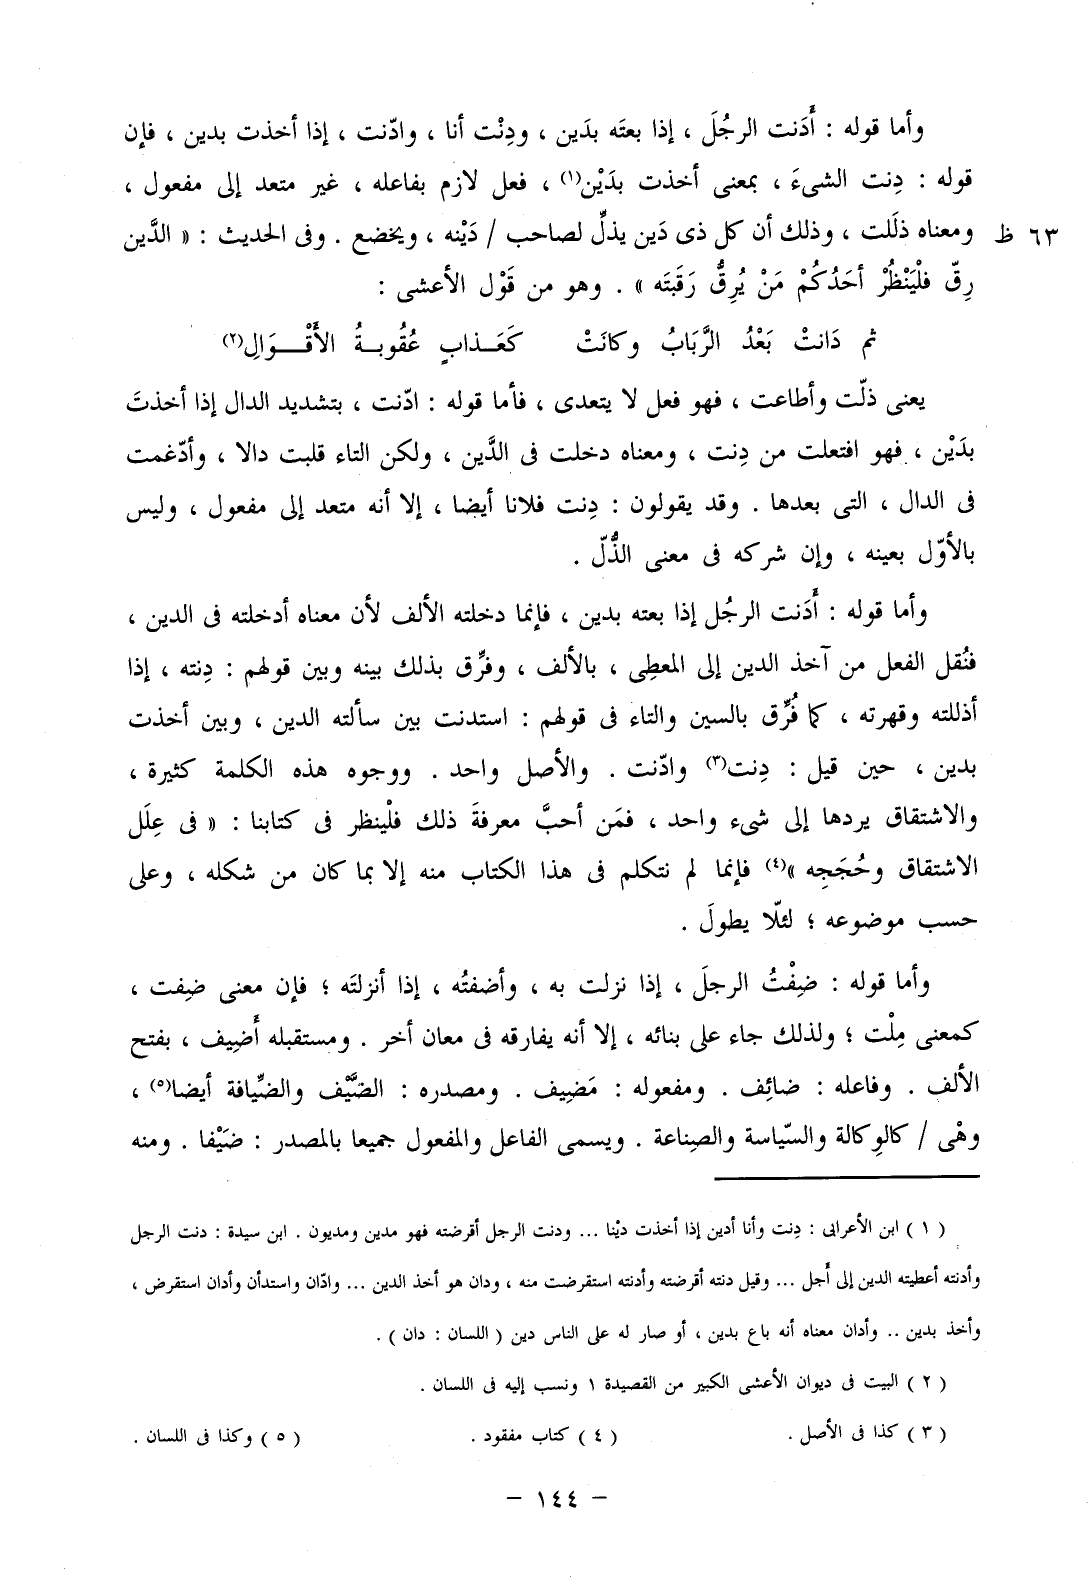 وأما قوله : أَدَنت الرجُلَ ، إذا بعتَه بدَين ، ودِنْت أنا ، وادّنت ، إذا أخذت بدين ، فإن
قوله : دِنت الشىءَ ، بمعنى أخذت بدَيْن(١) ، فعل لازم بفاعله ، غير متعد إلى مفعول ،
ومعناه ذلَلت ، وذلك أن كل ذى دَين يذلّ لصاحب / دَيْنه ، ويخضع . وفى الحديث : « الدَّين ٦٣ ظ
رِقّ فلْيَنْظُرْ أحَدُكُمْ مَنْ يُرِقُّ رَقَبتَه » . وهو من قَوْل الأعشى :
ثم دَانتْ بَعْدُ الرَّبَابُ وكانَتْ كَعَـذابٍ عُقُوبـةُ الأَقْـوَالِ(٢)
يعنى ذلّت وأطاعت ، فهو فعل لا يتعدى ، فأما قوله : ادّنت ، بتشديد الدال إذا أخذتَ
بدَيْن ، فهو افتعلت من دِنت ، ومعناه دخلت فى الدَّين ، ولكن التاء قلبت دالا ، وأدّغمت
فى الدال ، التى بعدها . وقد يقولون : دِنت فلانا أيضا ، إلا أنه متعد إلى مفعول ، وليس
بالأوّل بعينه ، وإن شركه فى معنى الذُّلّ .
وأما قوله : أَدَنت الرجُل إذا بعته بدين ، فإنما دخلته الألف لأن معناه أدخلته فى الدين ،
فنُقل الفعل من آخذ الدين إلى المعطِى ، بالألف ، وفرِّق بذلك بينه وبين قولهم : دِنته ، إذا
أذللته وقهرته ، كما فُرِّق بالسين والتاء فى قولهم : استدنت بين سألته الدين ، وبين أخذت
بدين ، حين قيل : دِنت(٣) وادّنت . والأصل واحد . ووجوه هذه الكلمة كثيرة ،
والاشتقاق يردها إلى شىء واحد ، فمَن أحبَّ معرفةَ ذلك فلْينظر فى كتابنا : « فى عِلَل
الاشتقاق وحُجَجِه »(٤) فإنما لم نتكلم فى هذا الكتاب منه إلا بما كان من شكله ، وعلى
حسب موضوعه ؛ لئلّا يطولَ .
وأما قوله : ضِفْتُ الرجلَ ، إذا نزلت به ، وأضفتُه ، إذا أنزلتَه ؛ فإن معنى ضِفت ،
كمعنى مِلْت ؛ ولذلك جاء على بنائه ، إلا أنه يفارقه فى معان أخر . ومستقبله أَضِيف ، بفتح
الألف . وفاعله : ضائِف . ومفعوله : مَضِيف . ومصدره : الضَّيْف والضِّيافة أيضا(٥) ،
وهْى / كالوِكالة والسّياسة والصِناعة . ويسمى الفاعل والمفعول جميعا بالمصدر : ضيَْفا . ومنه
( ١ ) ابن الأعرابى : دِنت وأنا أدين إذا أخذت ديْنا ... ودنت الرجل أقرضته فهو مدين ومديون . ابن سيدة : دنت الرجل
وأدنته أعطيته الدين إلى أجل ... وقيل دنته أقرضته وأدنته استقرضت منه ، ودان هو أخذ الدين ... وادّان واستدأن وأدان استقرض ،
وأخذ بدين .. وأدان معناه أنه باع بدين ، أو صار له على الناس دين ( اللسان : دان ) .
( ٢ ) البيت فى ديوان الأعشى الكبير من القصيدة ١ ونسب إليه فى اللسان .
( ٣ ) كذا فى الأصل . ( ٤ ) كتاب مفقود . ( ٥ ) وكذا فى اللسان .
– ١٤٤ –